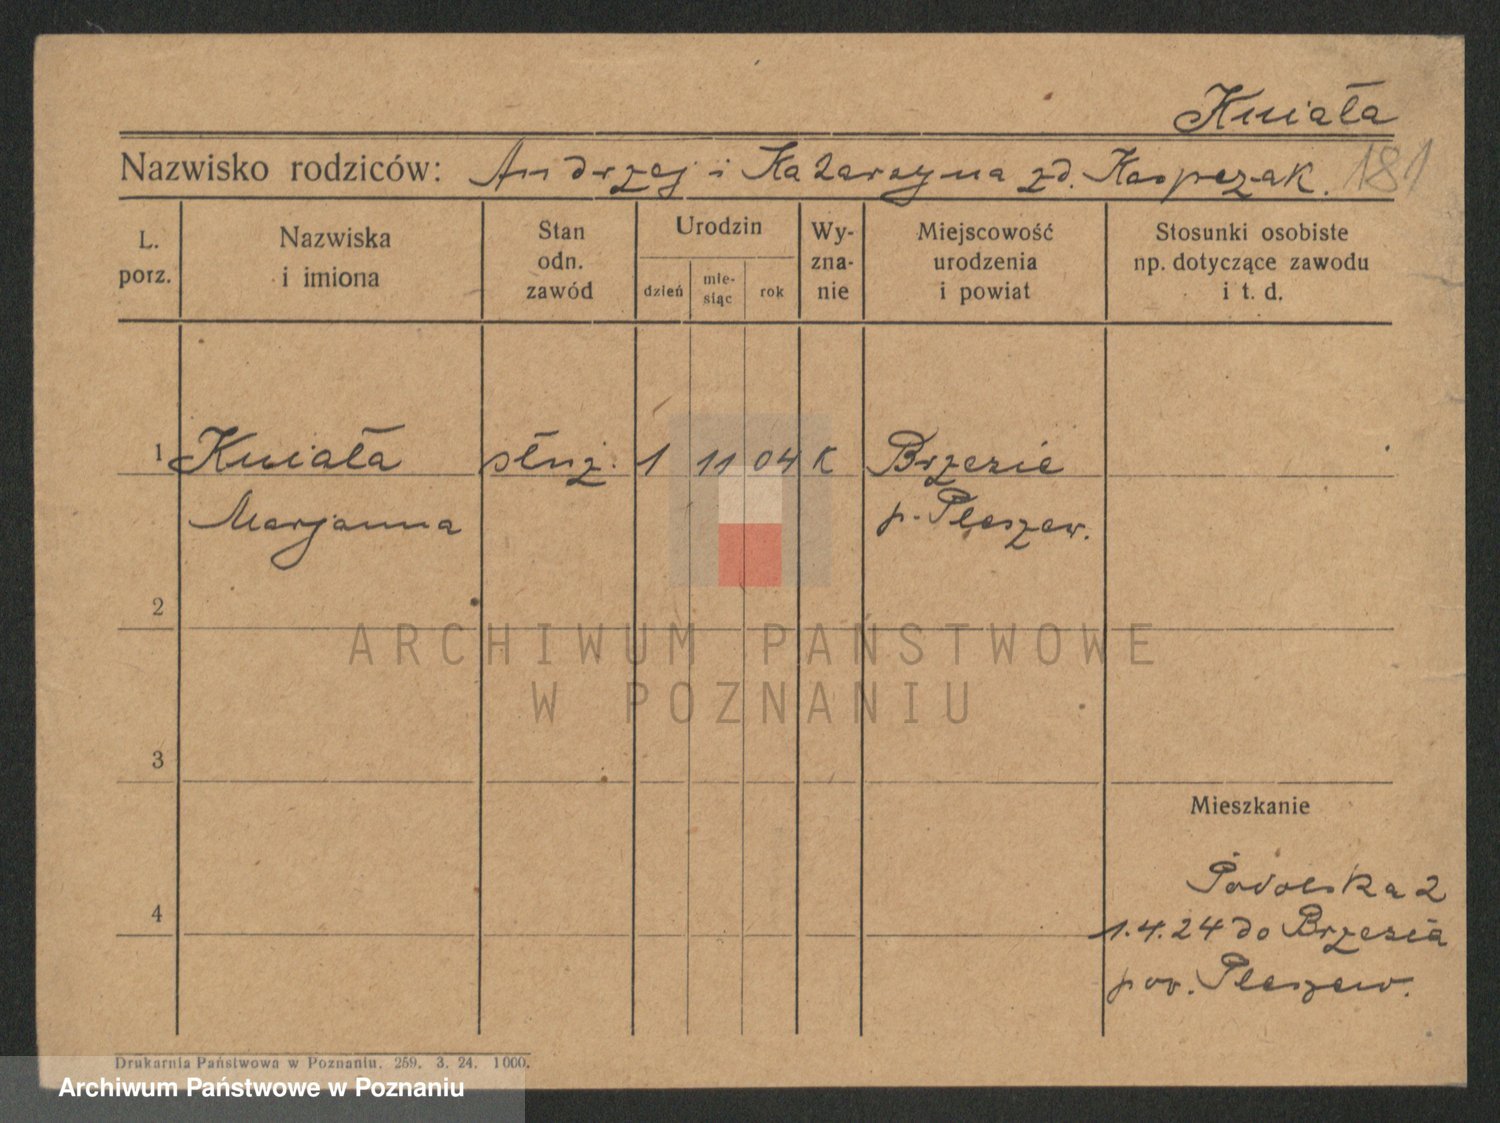 Kniała
Nazwisko rodziców: Andrzej i Katarzyna zd. Kasprzak. 181
L. porz.
Nazwiska i imiona
Stan odn. zawód
Urodzin
dzień
mie-siąc
rok
Wy-zna-nie
Miejscowość urodzenia i powiat
Stosunki osobiste np. dotyczące zawodu i t. d.
1 Kniała służ. 1 11 04 K Brzezie
Marjanna p. Pleszew.
2
3
Mieszkanie
4
Podolska 2
1.4.24 do Brzezia
pow. Pleszew.
Drukarnia Państwowa w Poznaniu. 259. 3. 24. 1000.
ARCHIWUM PAŃSTWOWE
W POZNANIU
Archiwum Państwowe w Poznaniu